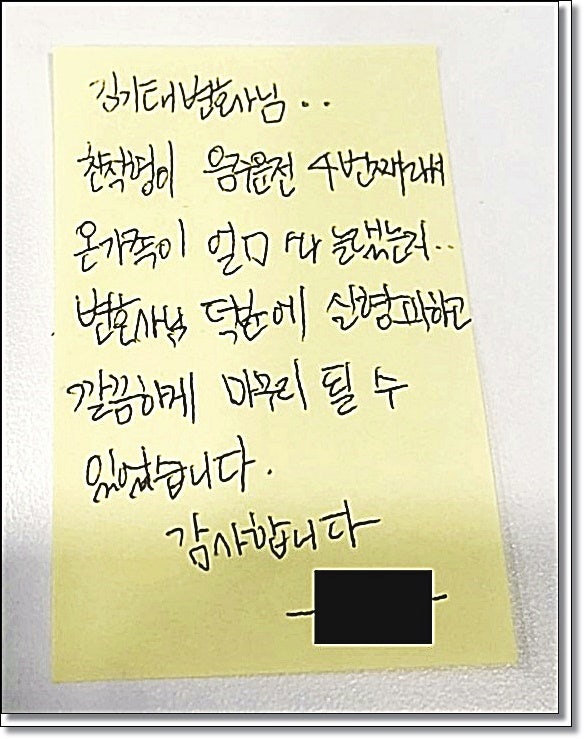 김기태변호사님..
음주운전 4번째래서
온가족이 얼마나 놀랬는지..
변호사님 덕분에 실형피하고
깔끔하게 마무리 될 수
있었습니다.
감사합니다